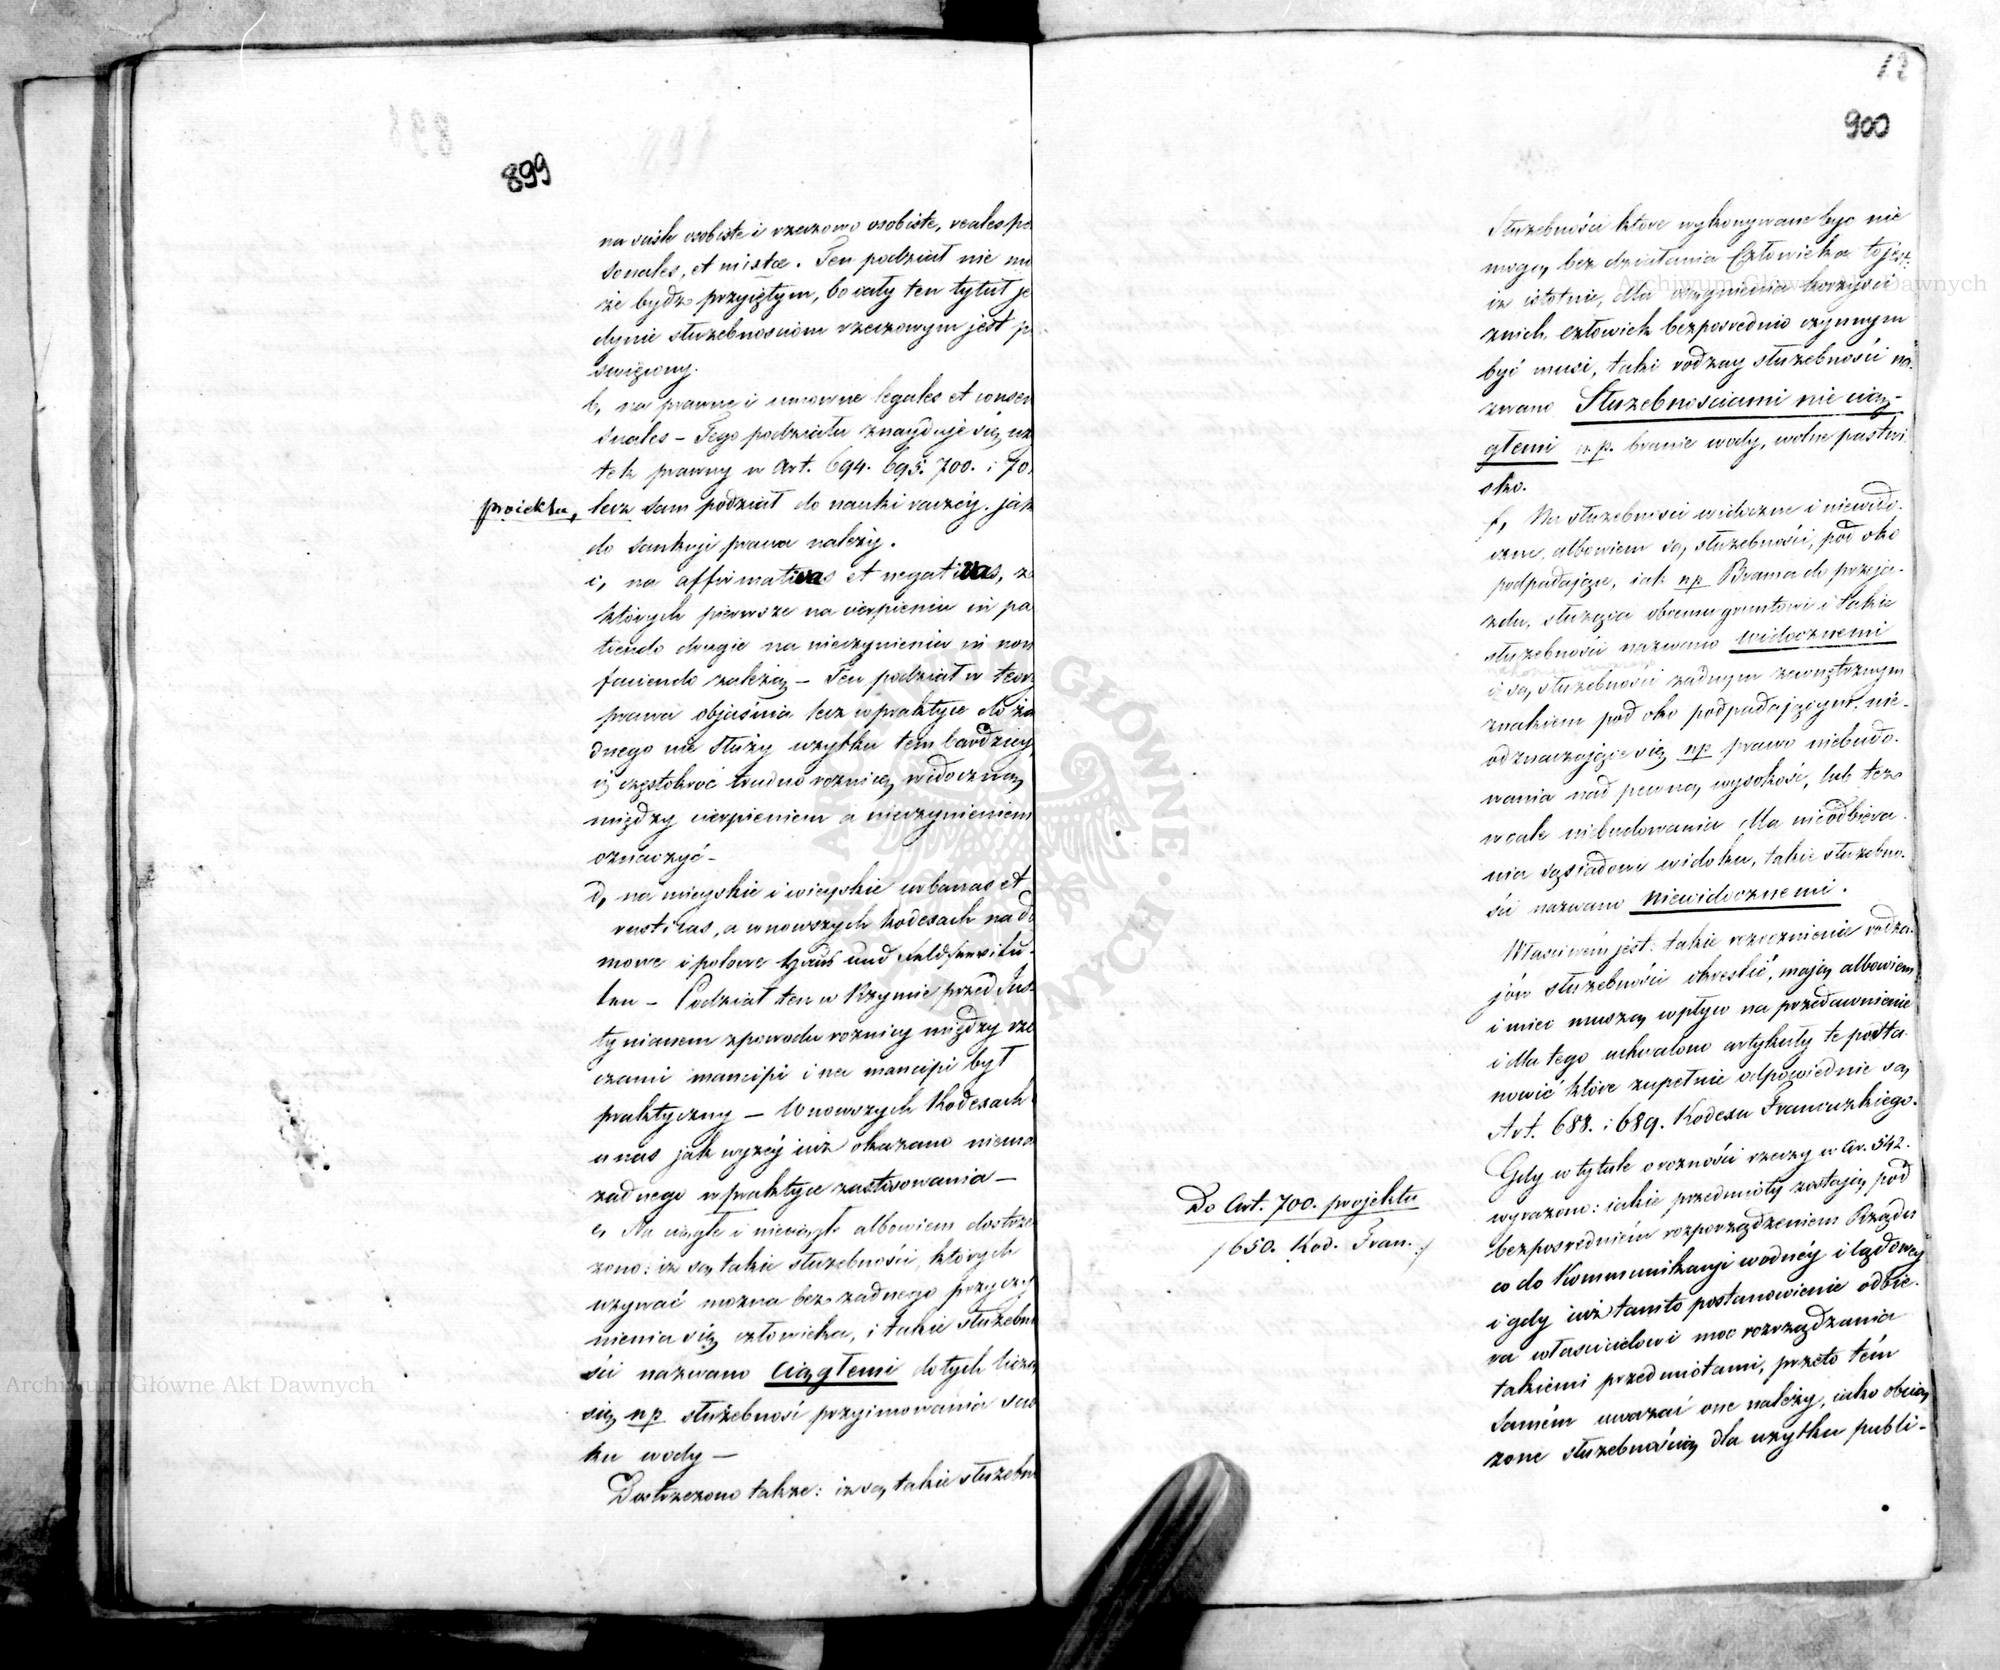 899
na ściśle osobiste i rzeczowo osobiste, reales pe
sonales, et mixtae. Ten podział nie mo
że bydz przyiętym, bo cały ten tytuł je
dynie służebnosciom rzeczowym jest p
swięcony.
b, na prawne i umowne legales et consen
suales – Tego podziału znayduje się uży
tek prawny w Art. 694. 695. 700. i 70
proiektu, lecz sam podział do nauki raczéy. jak
do sankcyi prawa należy.
c, na affirmativas et negativas, z
których pierwsze na cierpieniu in pa
tiendo drugie na nieczynieniu in non
faciendo zależą – Ten podział w teor
prawa objaśnia lecz w praktyce do ża
dnego nie służy uzytku tem bardziey
iż częstokroć trudno roznicę widoczną
między cierpieniem a nieczynieniem
oznaczyć –
d, na mieyskie i wieyskie urbanas et
rusticas, a w nowszych kodexach na do
mowe i polowe Haus und Feldservitu-
ten – Podział ten w Rzymie przed Jus-
tynianem z powodu roznicy między rze
czami mancipi i nec mancipi był
praktyczny – W nowszych Kodexach
u nas jak wyzéy iuż okazano niema
żadnego w praktyce zastosowania –
e, Na ciągłe i nieciągłe albowiem dostrze
żono: iż są takie służebności, których
uzywać mozna bez zadnego przyczy
nienia się człowieka, i takie służebno
ści nazwano ciągłemi do tych liczą
się np służebność przyimowania scie
ku wody –
Dostrzezono także: iż są takie służebno
12
900
Służebności które wykonywane byc nie
mogą bez działania Człowieka to jest:
iż istotnie, dla osiągnienia korzyści
znich, człowiek bezpośrednio czynnym
być musi, taki rodzay służebności na-
zwano Służebnosciami nie cią-
głemi n.p. branie wody, wolne pastwi
sko.
f, Na służebności widoczne i niewido-
czne, albowiem są służebności, pod oko
podpadające, iak np Brama do przeja-
zdu, służąca obcemu gruntowi i takie
służebności nazwano widocznemi
i są służebności żadnym zewnętrznym
znakiem pod oko podpadającym. nie-
odznaczające się np prawo niebudo-
wania nad pewną wysokość, lub też
wcale niebudowania dla nieodbiera-
nia sąsiadowi widoku, takie służebno-
ści nazwano niewidocznemi.
Właściwém jest: takie rozroznienie rodza-
jów służebności określić, mają albowiem
i mieć muszą wpływ na przedawnienie
i dla tego uchwalono artykuły te posta-
nowić które zupełnie odpowiednie są
Art. 688. i 689. Kodexu Francuzkiego.
Do Art. 700. projektu
/650. Kod. Fran./
Gdy w tytule o rozności rzeczy w Ar. 542.
wyrażono: iakie przedmioty zostają pod
bezpośredniém rozporządzeniem Rządu
co do Kommunikacyi wodnéy i lądowey
i gdy iuż tamto postanowienie odbie-
ra właścicielowi moc rozrządzania
takiemi przedmiotami, przeto tém
samém uważać one należy, iako obcią
żone służebnością dla uzytku publi-
Archiwum Główne Akt Dawnych
Archiwum Główne Akt Dawnych